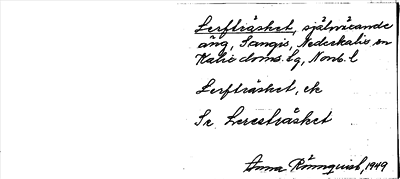 Lerfträsket, självväxande
äng, Sangis, Nederkalix sn
Kalix doms. lg, Norrb. l
Lerfträsket, ck
Se Lerestråsket
Anna Rönnquist, 1949